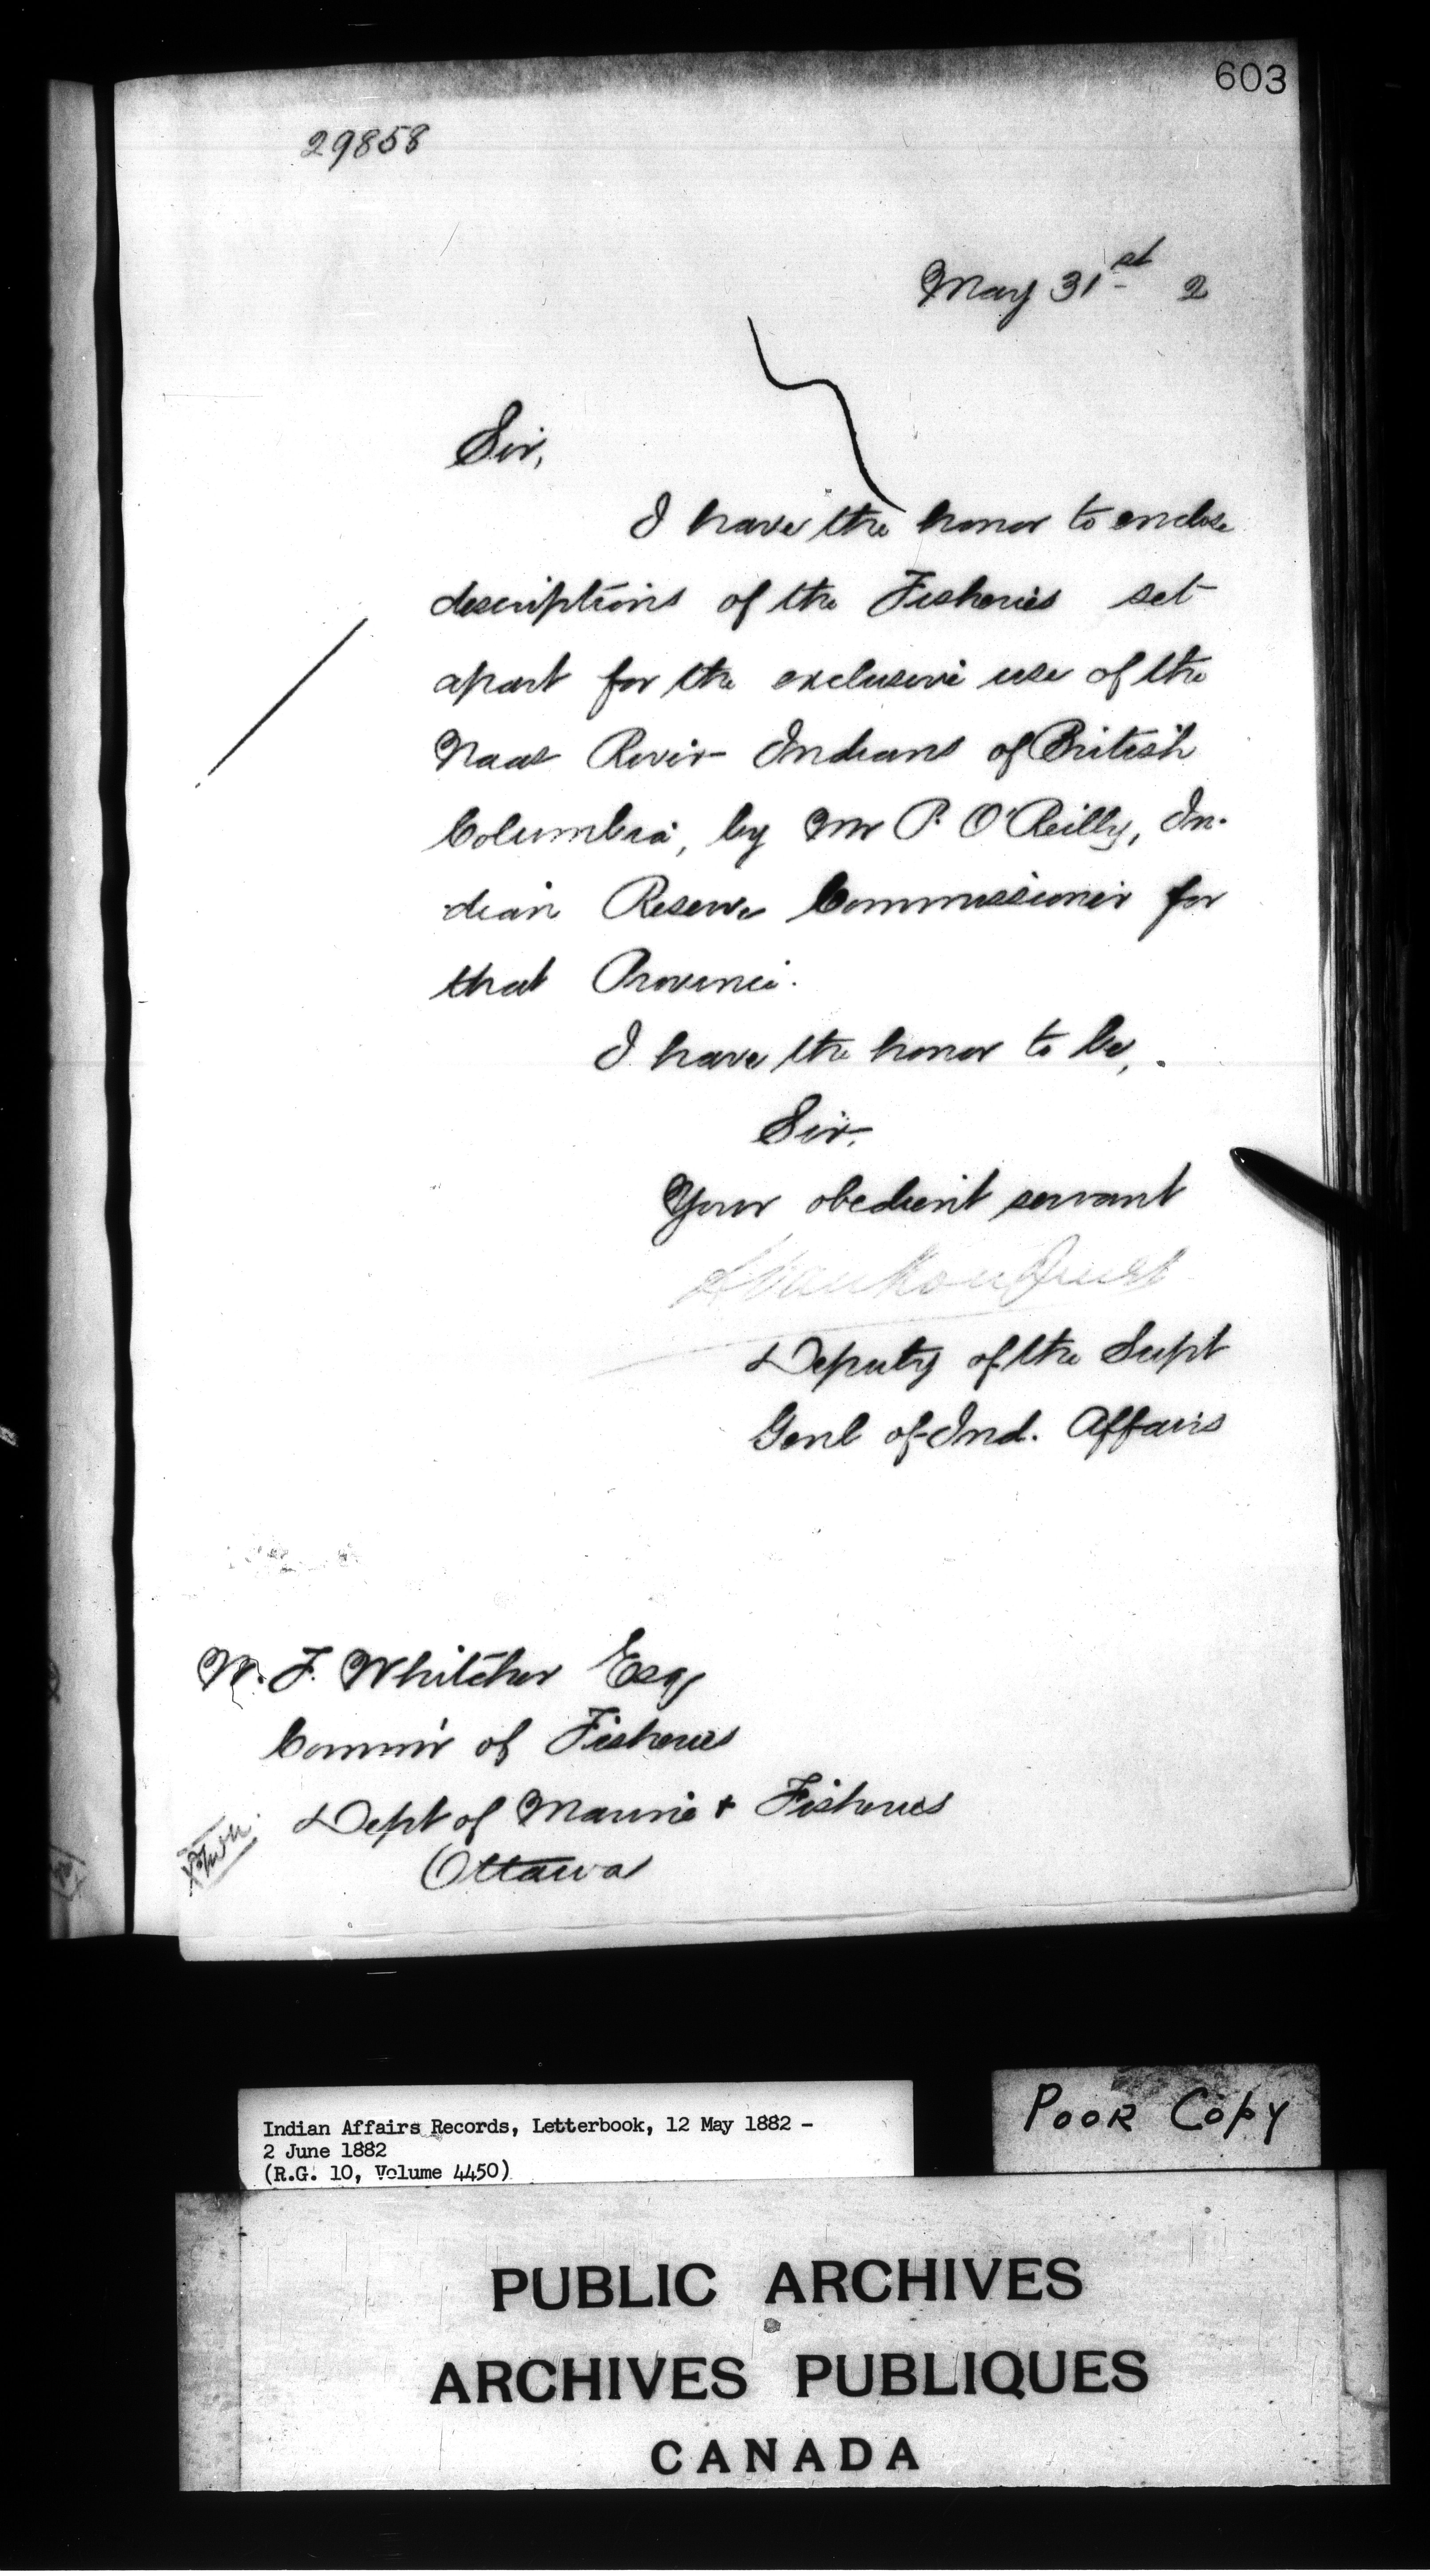 603
29858
May 31st 2
Sir,
I have the honor to enclose
descriptions of the Fisheries set
apart for the exclusive use of the
Naas River Indians of British
Columbia, by Mr P. O'Reilly, In-
dian Reserve Commissioner for
that Province.
I have the honor to be,
Sir,
Your obedient servant
L Vankoughnet
Deputy of the Supt
Genl of Ind. Affairs
W. F. Whitcher Esq
Commr of Fisheries
Dept of Marine & Fisheries
Ottawa
Indian Affairs Records, Letterbook, 12 May 1882 -
2 June 1882
(R.G. 10, Volume 4450)
POOR COPY
PUBLIC ARCHIVES
ARCHIVES PUBLIQUES
CANADA